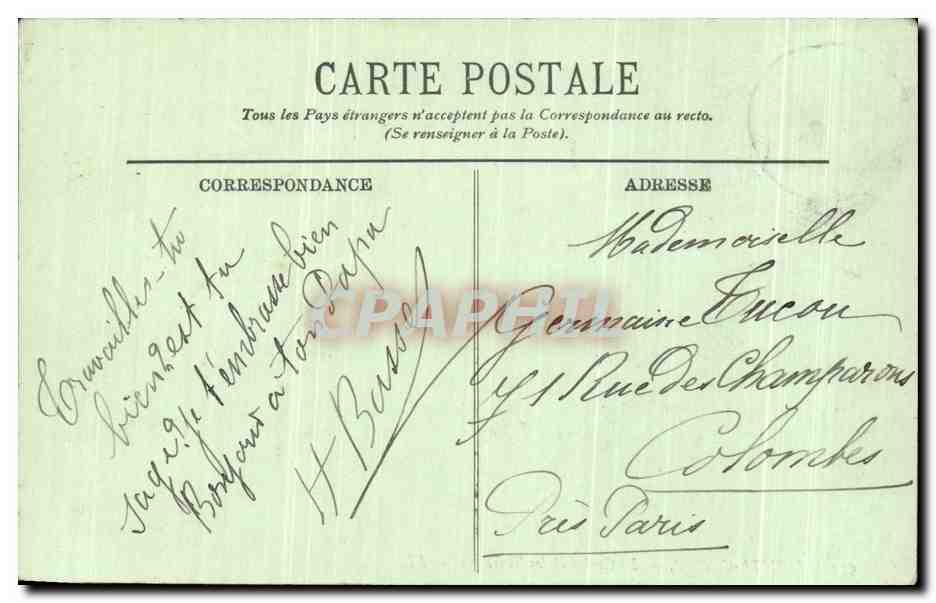 CARTE POSTALE
Tous les Pays étrangers n'acceptent pas la Correspondance au recto.
(Se renseigner à la Poste).
CORRESPONDANCE
Travailles-tu
bien est tu
sage je t'embrasse bien
Bonjour a ton Papa
H Bussel
CPAPHIL
ADRESSE
Mademoiselle
Germaine Tucou
71 Rue des Champarons
Colombes
Près Paris